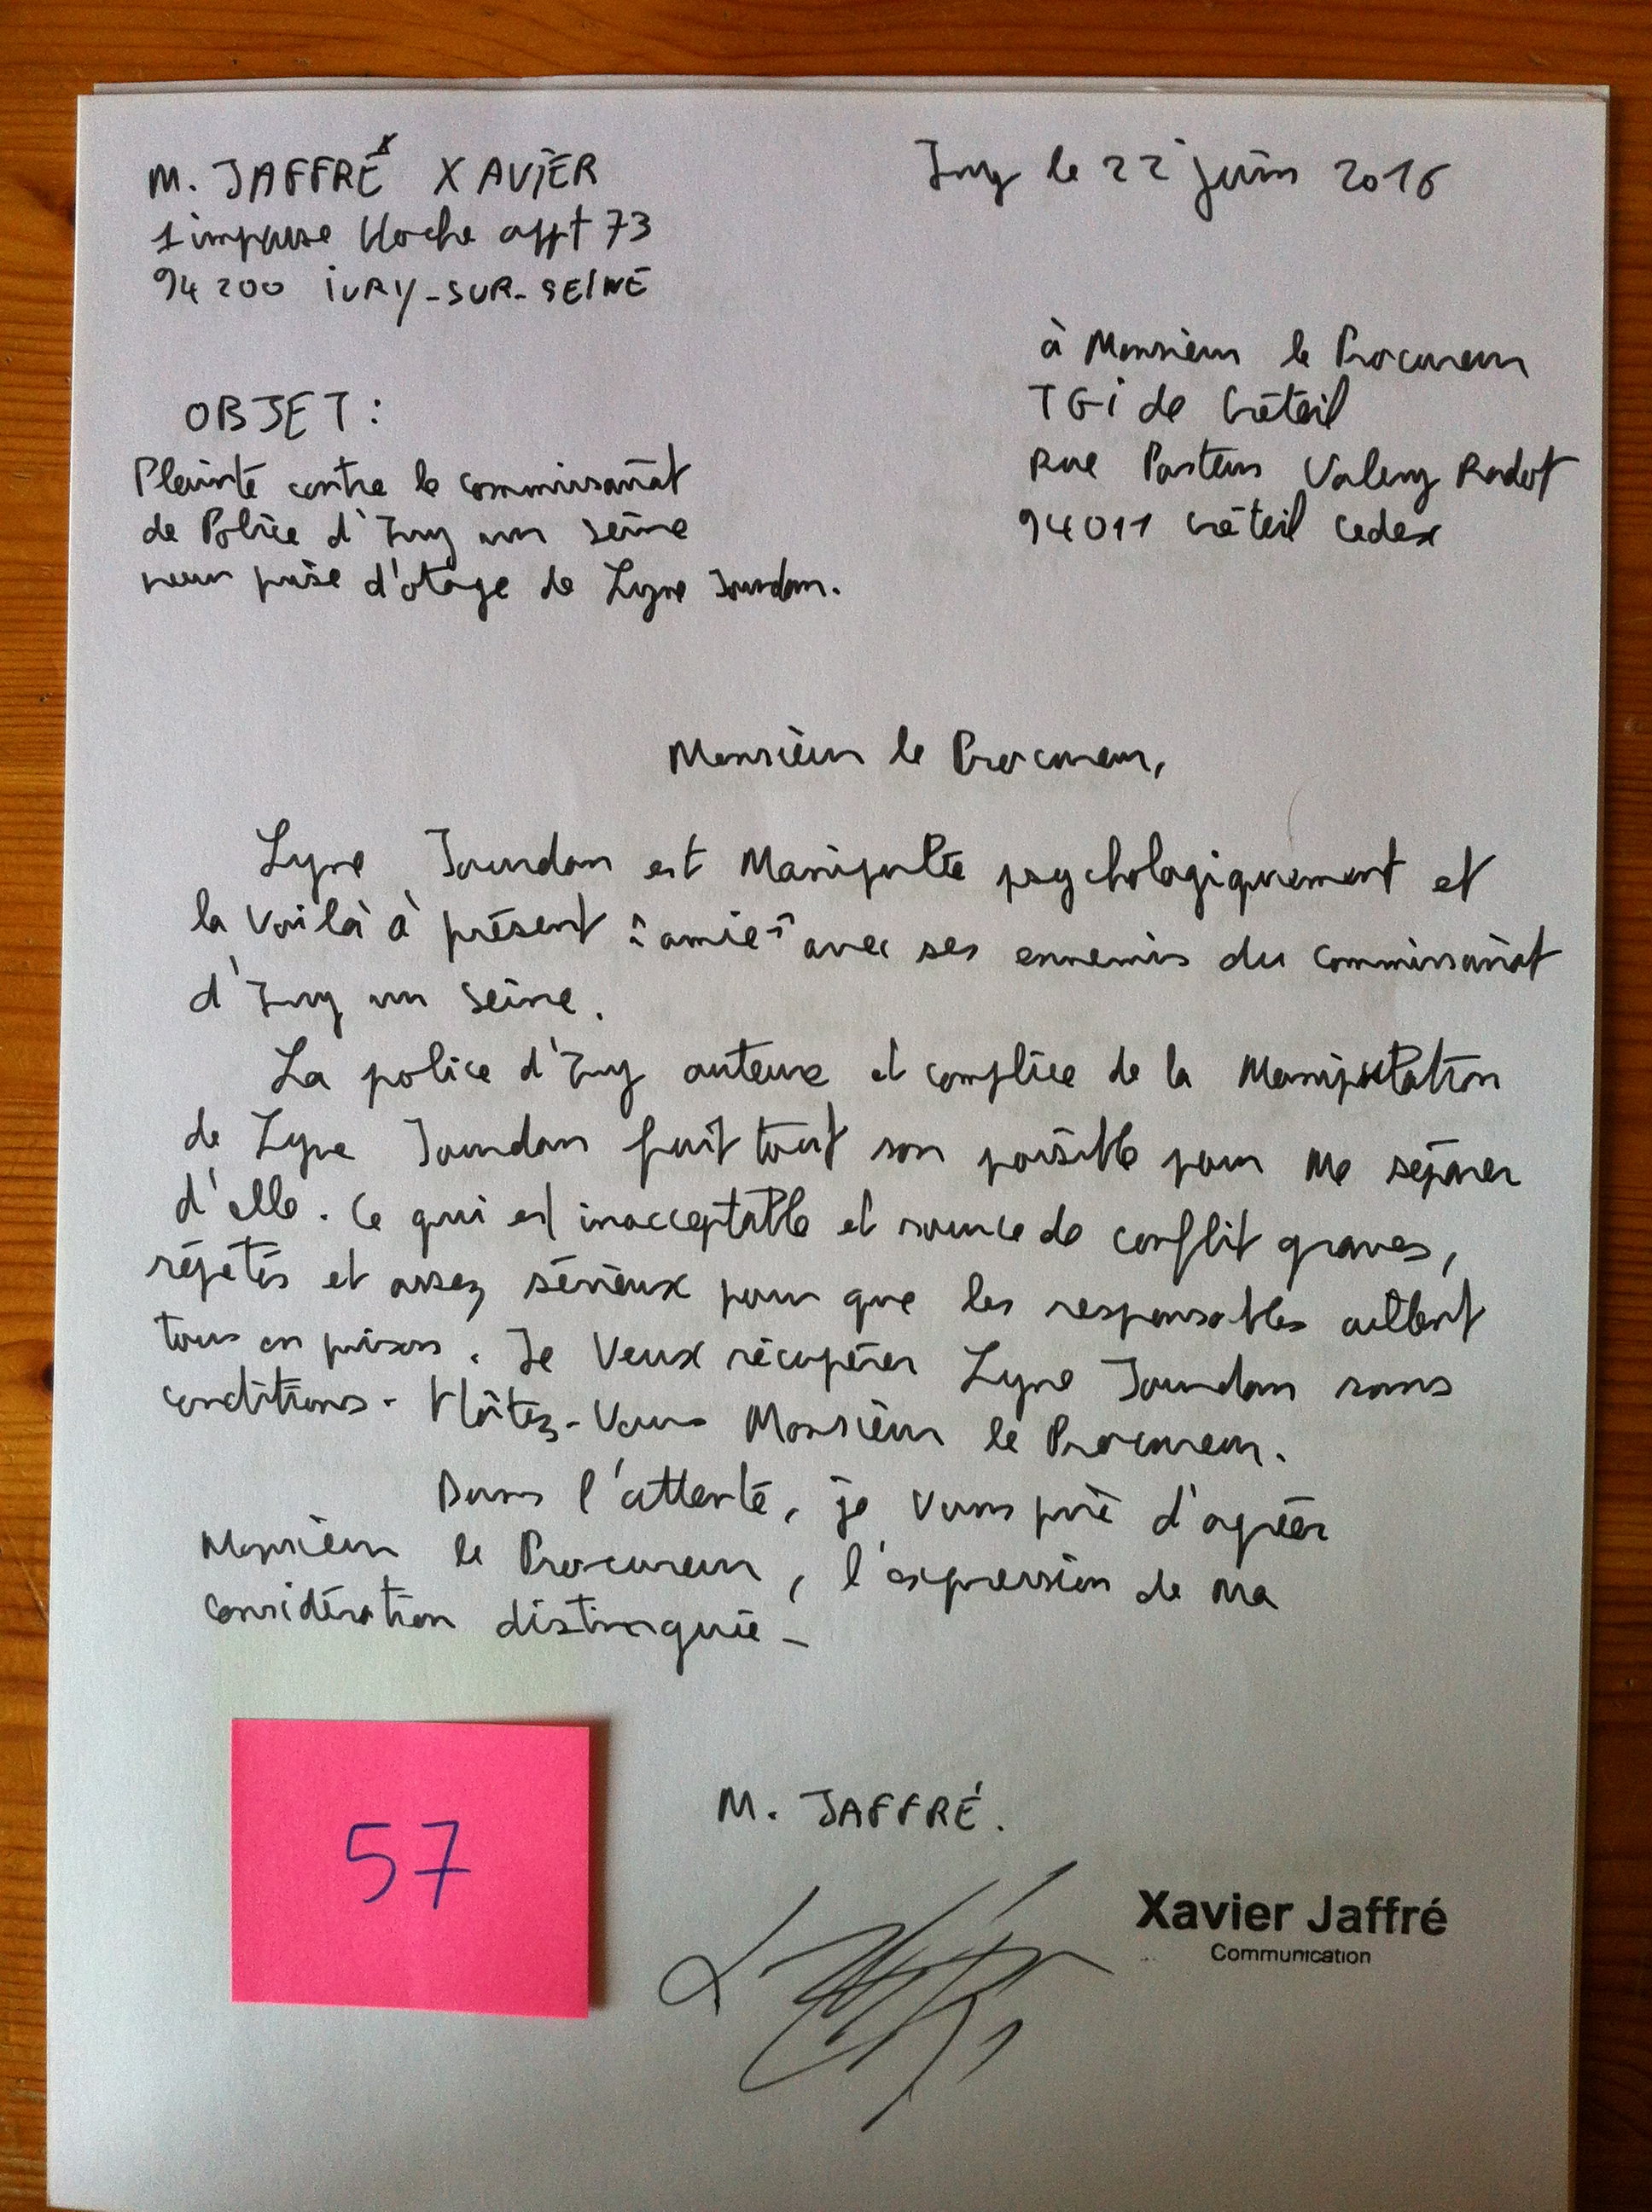 M. JAFFRÉ XAVIER
Ivry le 22 juin 2016
1 impasse Hoche appt 73
94200 IVRY-SUR-SEINE
à Monsieur le Procureur
TGI de Créteil
Rue Pasteur Valery Radot
94011 Créteil Cedex
OBJET :
Plainte contre le commissariat
de Police d'Ivry sur Seine
pour prise d'otage de Lyne Jourdan.
Monsieur le Procureur,
Lyne Jourdan est Manipulée psychologiquement et
la voilà à présent "amie" avec ses ennemis du commissariat
d'Ivry sur Seine.
La police d'Ivry auteure et complice de la Manipulation
de Lyne Jourdan fait tout son possible pour me séparer
d'elle. Ce qui est inacceptable et source de conflit graves,
répétés et assez sérieux pour que les responsables aillent
tous en prison. Je veux récupérer Lyne Jourdan sans
conditions - Hâtez-vous Monsieur le Procureur.
Dans l'attente, je vous prie d'agréer
Monsieur le Procureur, l'expression de ma
considération distinguée -
M. JAFFRÉ.
57
Xavier Jaffré
Communication